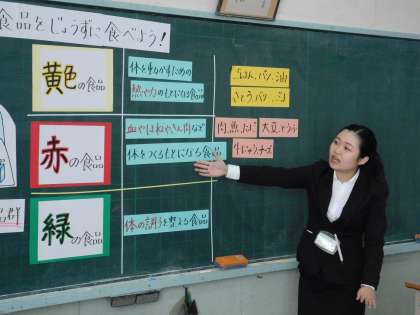 食品をじょうずに食べよう!
黄色の食品
体を動かすための
熱や力のもとになる食品
ごはん、パン、油
さとう、バター
赤の食品
血や肉、ほねやきん肉など
体をつくるもとになる食品
肉、魚、たまご
大豆、とうふ
牛にゅう、チーズ
緑の食品
体の調子を整える食品
品群